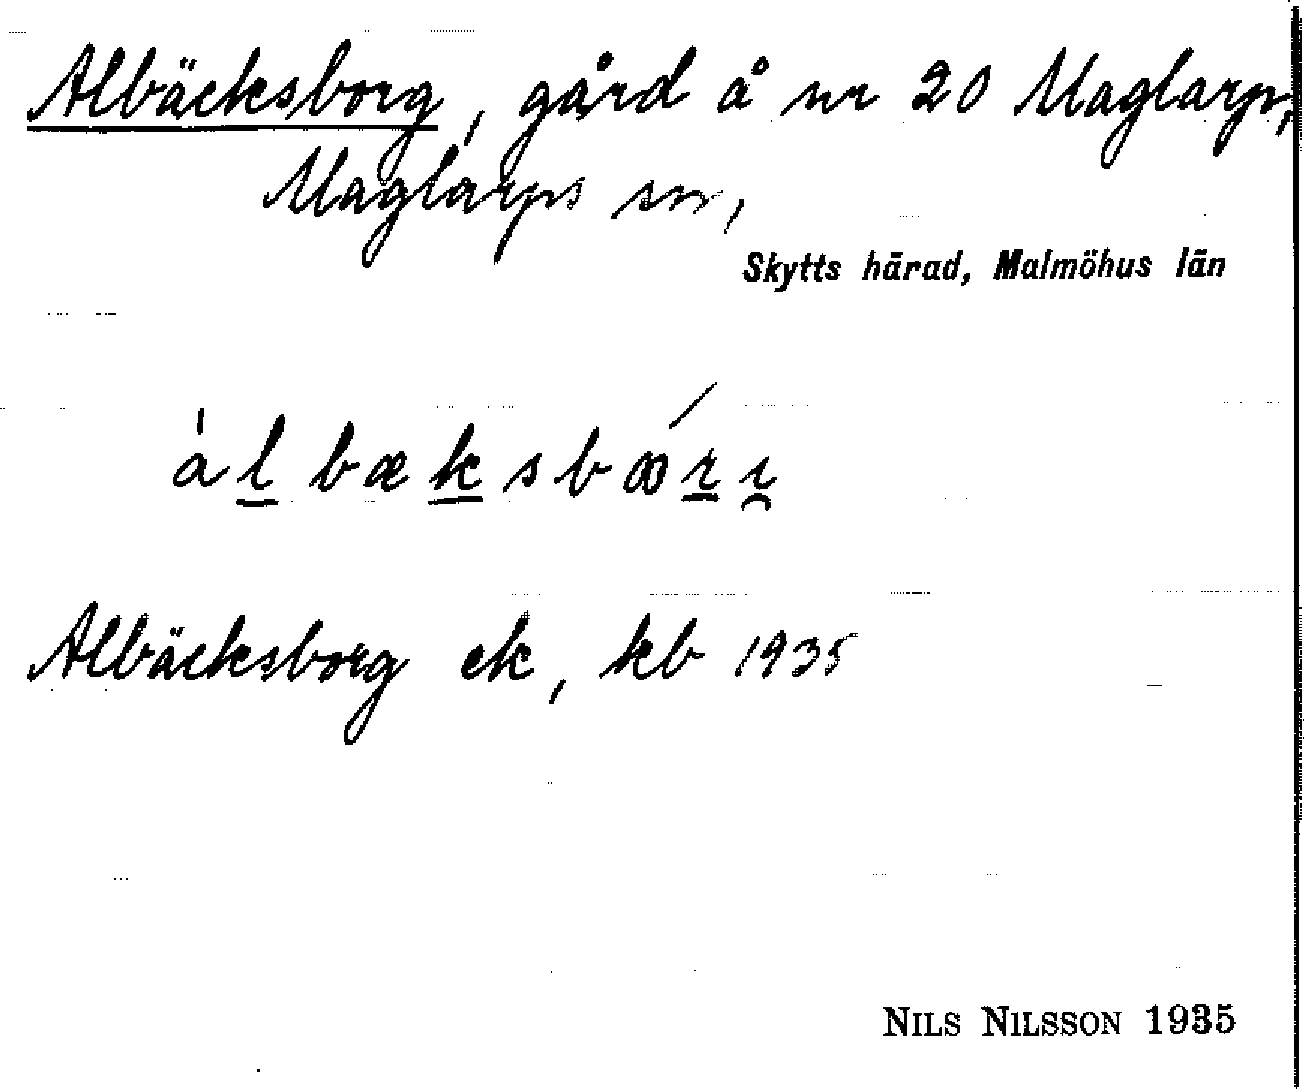 Albäcksborg, gård å nr 20 Maglarp,
Maglarps sn,
Skytts härad, Malmöhus län
Albäcksborg ek, kb 1935
NILS NILSSON 1935